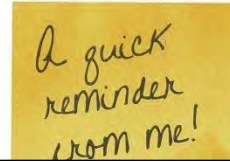 A quick
reminder
from me!